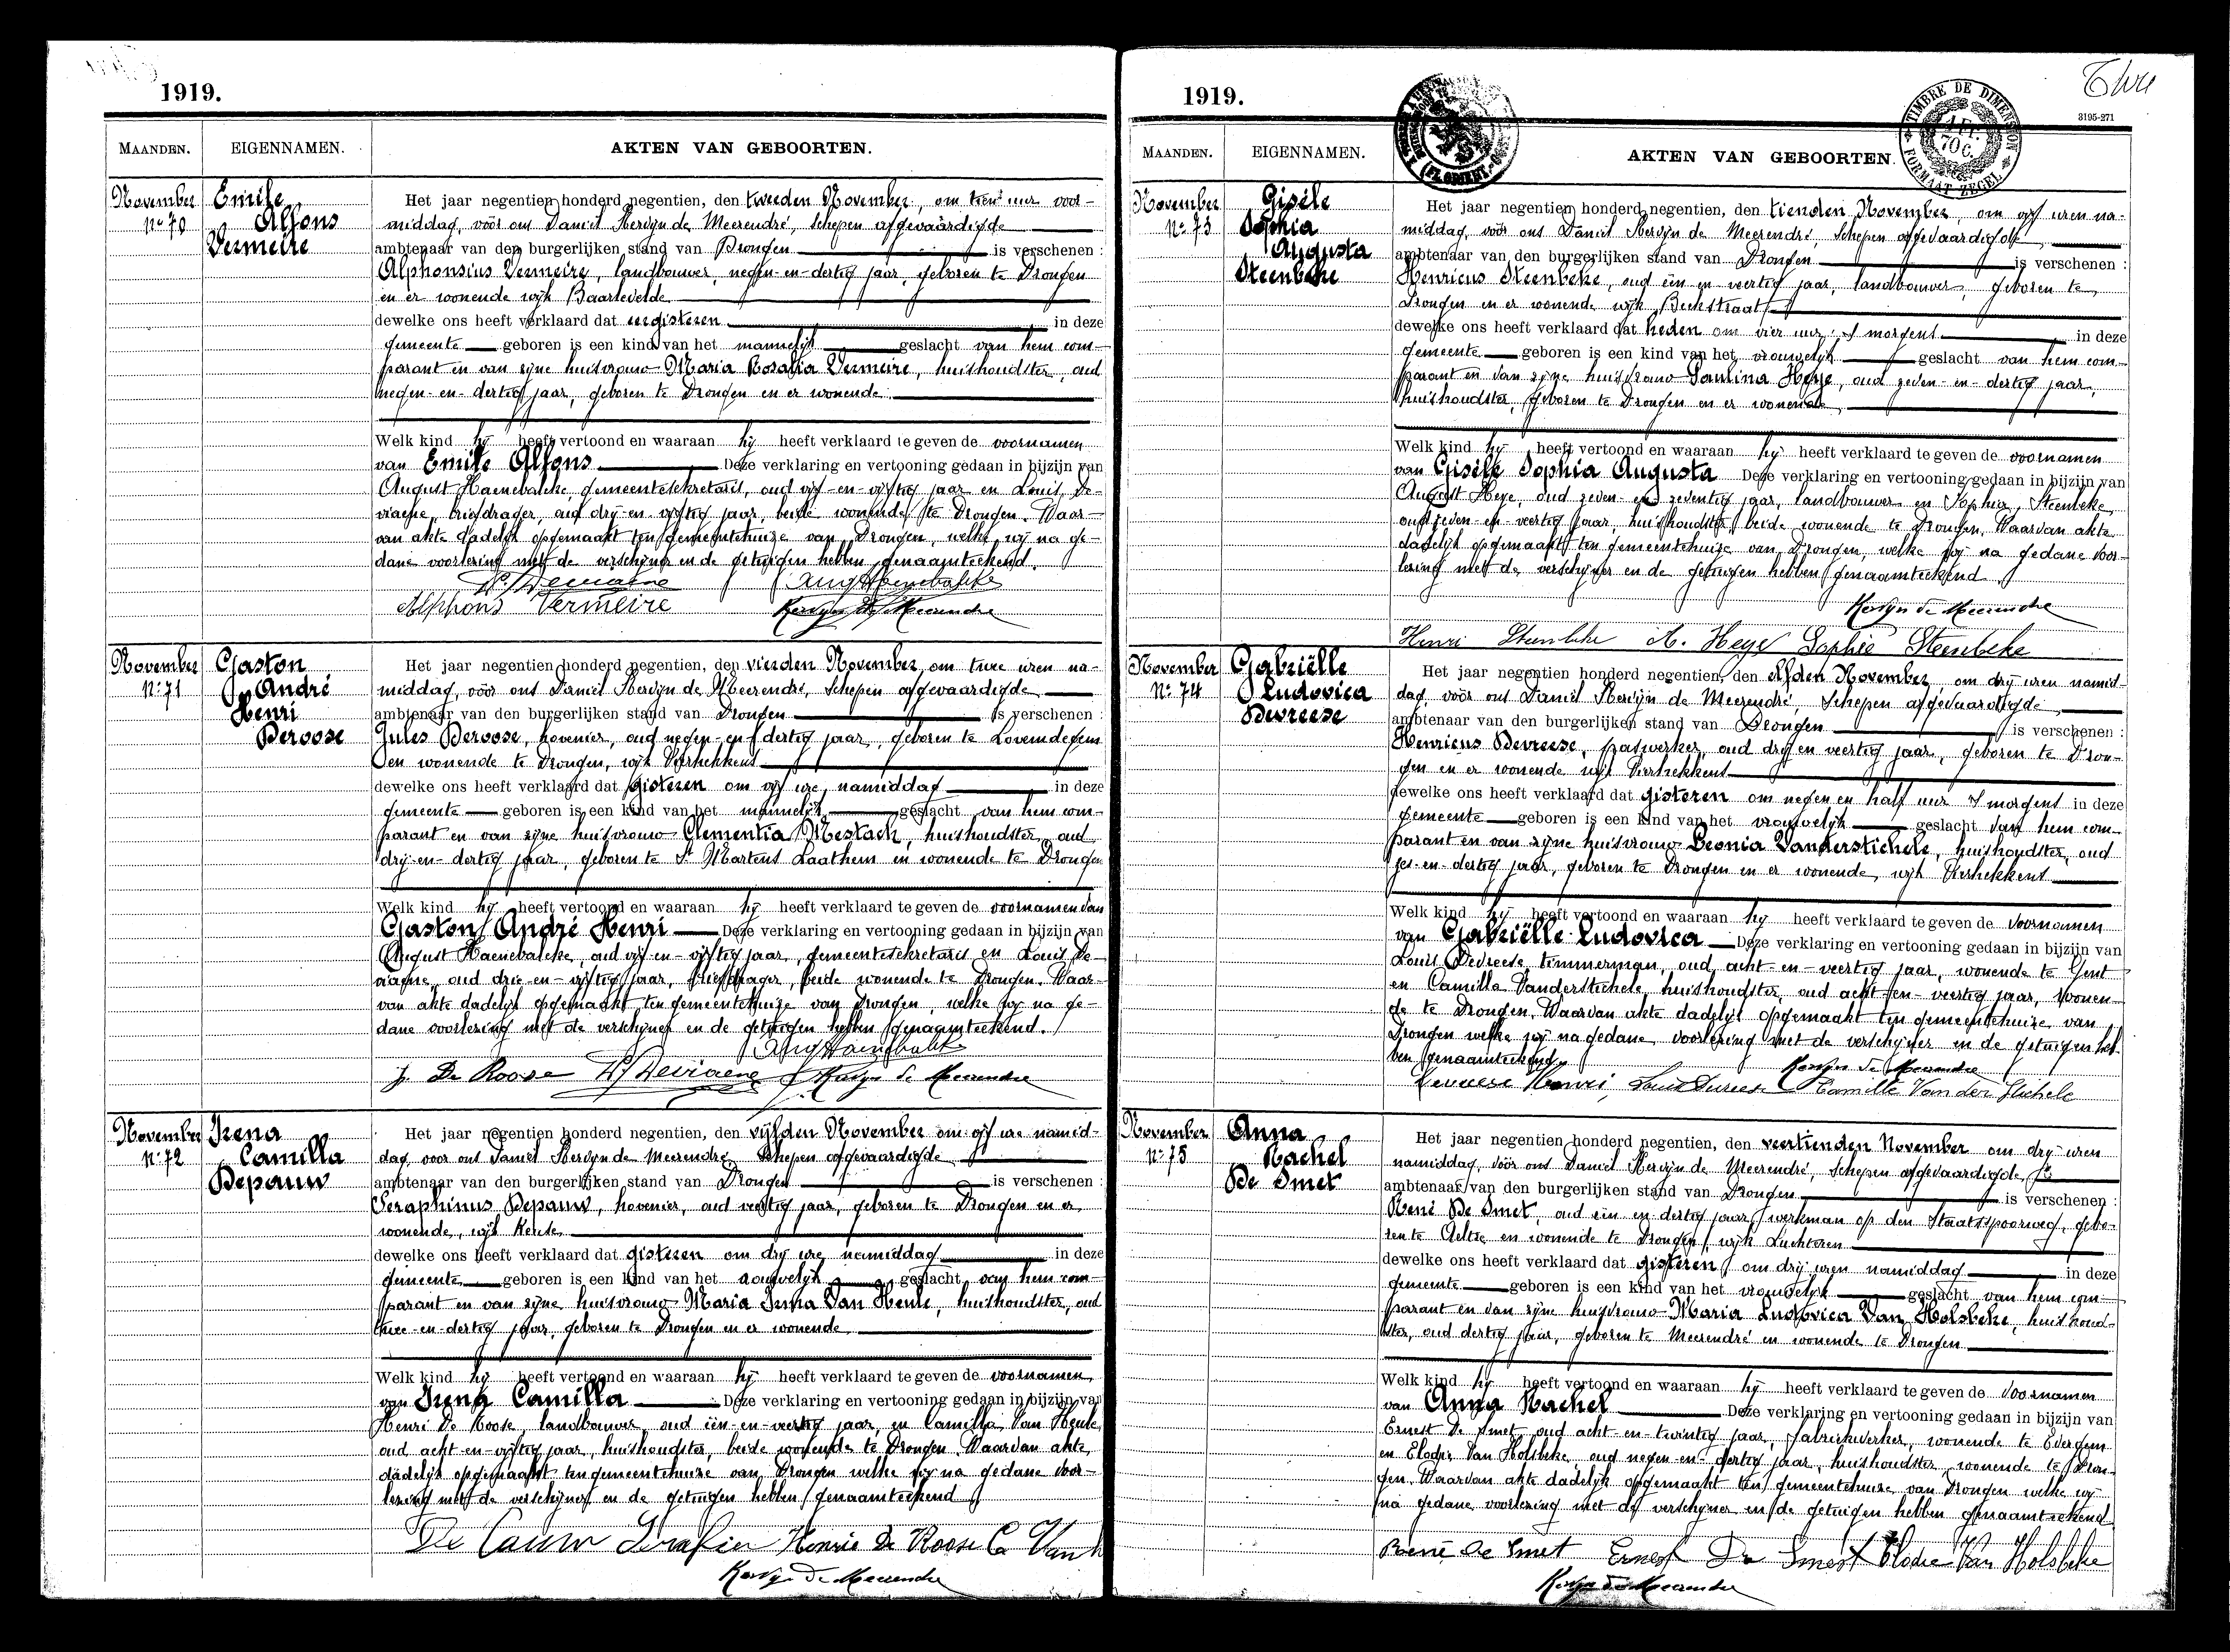 1919.
MAANDEN.
EIGENNAMEN.
AKTEN VAN GEBOORTEN.
November
No 70
Emile
Alfons
Vermeire
Het jaar negentien honderd negentien, den tweeden November, om tien uur voor-
middag, vóór ons Daniël Kervyn de Meerendré, Schepen afgevaardigde
ambtenaar van den burgerlijken stand van Drongen is verschenen :
Alphonsius Vermeire, landbouwer, negen-en-dertig jaar, geboren te Drongen
en er wonende wijk Baarlevelde
dewelke ons heeft verklaard dat eergisteren in deze
gemeente geboren is een kind van het mannelijk geslacht van hem com-
parant en van zijne huisvrouw Maria Rosalia Vermeire, huishoudster, oud
negen-en-dertig jaar, geboren te Drongen en er wonende
Welk kind hij heeft vertoond en waaraan hij heeft verklaard te geven de voornamen
van Emile Alfons Deze verklaring en vertooning gedaan in bijzijn van
August Haenebalcke, gemeentesekretaris, oud vijf-en-vijftig jaar en Louis De-
viaene, briefdrager, oud drij-en vijftig jaar, beide wonende te Drongen. Waar-
van akte dadelijk opgemaakt ten gemeentehuize van Drongen, welke wij na ge-
dane voorlezing met de verschijner en de getuigen hebben genaamteekend.
Ls Deviaene Aug Haenebalcke
Alphons Vermeire Kervyn de Meerendre
November
No 71
Gaston
André
Henri
Deroose
Het jaar negentien honderd negentien, den vierden November, om twee uren na-
middag, vóór ons Daniël Kervyn de Meerendré, Schepen afgevaardigde
ambtenaar van den burgerlijken stand van Drongen is verschenen :
Jules Deroose, hovenier, oud negen-en-dertig jaar, geboren te Lovendegem
en wonende te Drongen, wijk Varhekkens
dewelke ons heeft verklaard dat gisteren om vijf ure, namiddag in deze
gemeente geboren is een kind van het mannelijk geslacht van hem com-
parant en van zijne huisvrouw Clementia Mestach, huishoudster, oud
drij-en-dertig jaar, geboren te St Martens Laathem en wonende te Drongen
Welk kind hij heeft vertoond en waaraan hij heeft verklaard te geven de voornamen van
Gaston André Henri Deze verklaring en vertooning gedaan in bijzijn van
August Haenebalcke, oud vijf-en-vijftig jaar, gemeentesekretaris en Louis De-
viaene, oud drie-en-vijftig jaar, briefdrager, beide wonende te Drongen. Waar-
van akte dadelijk opgemaakt ten gemeentehuize van Drongen, welke wij na ge-
dane voorlezing met de verschijner en de getuigen hebben genaamteekend.
Aug Haenebalcke
J. De Roose Ls Deviaene Kervyn de Meerendre
November
No 72
Irena
Camilla
Depauw
Het jaar negentien honderd negentien, den vijfden November om vijf ure namid-
dag, voor ons Daniël Kervyn de Meerendré Schepen afgevaardigde
ambtenaar van den burgerlijken stand van Drongen is verschenen :
Seraphinus Depauw, hovenier, oud veertig jaar, geboren te Drongen en er
wonende, wijk Keuze
dewelke ons heeft verklaard dat gisteren om drij ure namiddag in deze
gemeente geboren is een kind van het vrouwelijk geslacht van hem com-
parant en van zijne huisvrouw Maria Irma Van Heule, huishoudster, oud
twee-en-dertig jaar, geboren te Drongen en er wonende
Welk kind hij heeft vertoond en waaraan hij heeft verklaard te geven de voornamen
van Irena Camilla Deze verklaring en vertooning gedaan in bijzijn van
Henri De Roose, landbouwer, oud één-en-veertig jaar, en Camilla Van Heule
oud acht-en-vijftig jaar, huishoudster, beide wonende te Drongen. Waarvan akte
dadelijk opgemaakt ten gemeentehuize van Drongen welke wij na gedane voor-
lezing met de verschijner en de getuigen hebben genaamteekend
De Pauw Serafien Henrie De Roose Ca Van h
Kervyn de Meerendre
1919.
3195-271
TIMBRE DE DIMENSION
1 FR.
70 C.
FORMAAT ZEGEL
MAANDEN.
EIGENNAMEN.
AKTEN VAN GEBOORTEN.
November
No 73
Gisèle
Sophia
Augusta
Steenbeke
Het jaar negentien honderd negentien, den tienden November, om vijf uren na-
middag, vóór ons Daniël Kervyn de Meerendré, Schepen afgevaardigde
ambtenaar van den burgerlijken stand van Drongen is verschenen :
Henricus Steenbeke, oud één en veertig jaar, landbouwer, geboren te
Drongen en er wonende wijk Beekstraat
dewelke ons heeft verklaard dat heden om vier uur 's morgens in deze
gemeente geboren is een kind van het vrouwelijk geslacht van hem com-
parant en van zijne huisvrouw Paulina Heye, oud zeven-en-dertig jaar,
huishoudster, geboren te Drongen en er wonende
Welk kind hij heeft vertoond en waaraan hij heeft verklaard te geven de voornamen
van Gisèle Sophia Augusta Deze verklaring en vertooning gedaan in bijzijn van
August Heye, oud zeven en zeventig jaar, landbouwer en Sophia Steenbeke,
oud zeven-en-veertig jaar, huishoudster, beide wonende te Drongen. Waarvan akte
dadelijk opgemaakt ten gemeentehuize van Drongen, welke wij na gedane voor-
lezing met de verschijner en de getuigen hebben genaamteekend.
Kervyn de Meerendre
Henri Steenbeke A. Heye Sophie Steenbeke
November
No 74
Gabriëlle
Ludovica
Devreese
Het jaar negentien honderd negentien, den elfden November, om drij uren namid-
dag, vóór ons Daniël Kervyn de Meerendré, Schepen afgevaardigde
ambtenaar van den burgerlijken stand van Drongen is verschenen :
Henricus Devreese, graswerker, oud drij en veertig jaar, geboren te Dron-
gen en er wonende wijk Varhekkens
dewelke ons heeft verklaard dat gisteren om negen en half uur 's morgens in deze
gemeente geboren is een kind van het vrouwelijk geslacht van hem com-
parant en van zijne huisvrouw Leonia Vanderstichele, huishoudster, oud
zes-en-dertig jaar, geboren te Drongen en er wonende, wijk Varhekkens
Welk kind hij heeft vertoond en waaraan hij heeft verklaard te geven de voornamen
van Gabriëlle Ludovica Deze verklaring en vertooning gedaan in bijzijn van
Louis Devreese, timmerman, oud acht-en-veertig jaar, wonende te Gent
en Camilla Vanderstichele, huishoudster, oud acht-en-veertig jaar, wonen-
de te Drongen. Waarvan akte dadelijk opgemaakt ten gemeentehuize van
Drongen welke wij na gedane voorlezing met de verschijner en de getuigen heb-
ben genaamteekend.
Kervyn de Meerendre
Devreese Henri, Louis Devreese Camille Van der Stichele
November
No 75
Anna
Rachel
De Smet
Het jaar negentien honderd negentien, den veertienden November om drij uren
namiddag, vóór ons Daniël Kervyn de Meerendré, Schepen afgevaardigde
ambtenaar van den burgerlijken stand van Drongen is verschenen :
René De Smet, oud één en dertig jaar, werkman op den Staatsspoorweg, gebo-
ren te Aeltre en wonende te Drongen, wijk Luchteren
dewelke ons heeft verklaard dat gisteren om drij uren namiddag in deze
gemeente geboren is een kind van het vrouwelijk geslacht van hem com-
parant en van zijne huisvrouw Maria Ludovica Van Holsbeke, huishoud-
ster, oud dertig jaar, geboren te Meerendré en wonende te Drongen
Welk kind hij heeft vertoond en waaraan hij heeft verklaard te geven de voornamen
van Anna Rachel Deze verklaring en vertooning gedaan in bijzijn van
Ernest De Smet, oud acht-en-twintig jaar, fabriekwerker, wonende te Evergem
en Elodie Van Holsbeke, oud negen-en-dertig jaar, huishoudster wonende te Dron-
gen. Waarvan akte dadelijk opgemaakt ten gemeentehuize van Drongen welke wij
na gedane voorlezing met de verschijner en de getuigen hebben genaamteekend
René De Smet Ernest De Smet Elodie Van Holsbeke
Kervyn de Meerendre